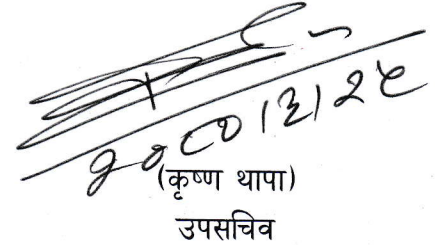 २०८०।३।२५
(कृष्ण थापा)
उपसचिव